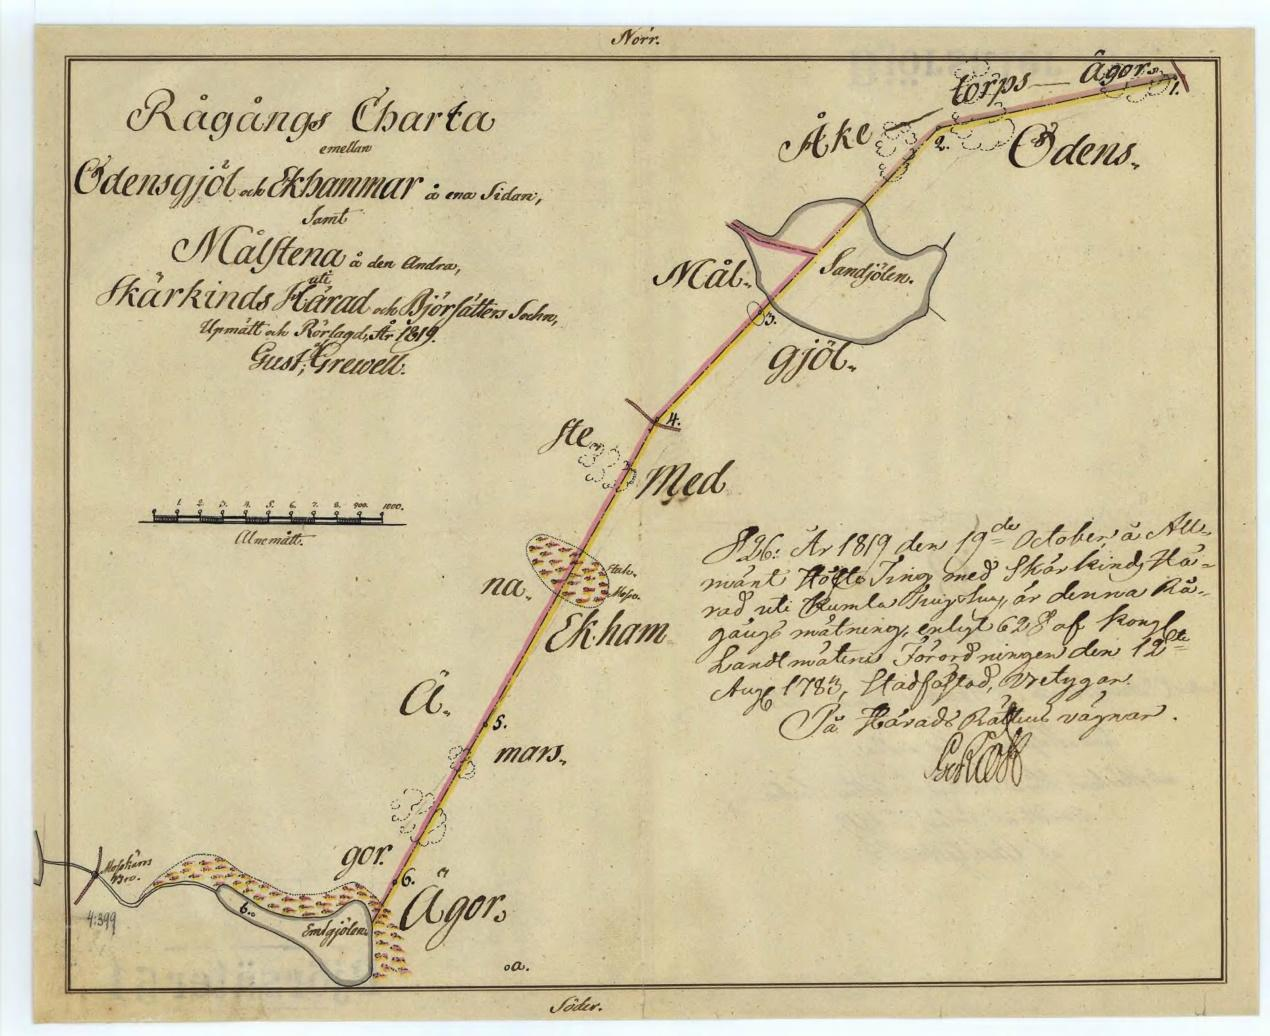 Norr.
Rågångs Charta
emellan
Ödensgjöl och Ekhammar å ena Sidan,
Samt
Målstena å den Andra,
uti
Skärkinds Härad och Björsätters Sochn,
Upmätt och Rörlagd, År 1819.
af
Gust: Grewell.
1. 2. 3. 4. 5. 6. 7. 8. 900. 1000.
Alnemått.
Åke torps Ägor.
1.
2.
Ödens,
Sandjölen.
Mål,
3.
gjöl,
4.
ste
Med
na,
Mosse
Ekham
Ä,
5.
mars,
gor.
6.
Ägor,
Bro.
4:399
6.
Emtgjölen.
a.
§26: År 1819 den 19de October, å All-
mänt Höste Ting med Skärkinds Hä-
rad uti Kumla Tingshus, är denna Rå-
gångs mätning, enligt 62§ af Kongl.
Landtmäteri Förordningen den 12te
Aug 1783, Stadfästad, Bretygar.
På Härads Rättens vägnar.
Söder.